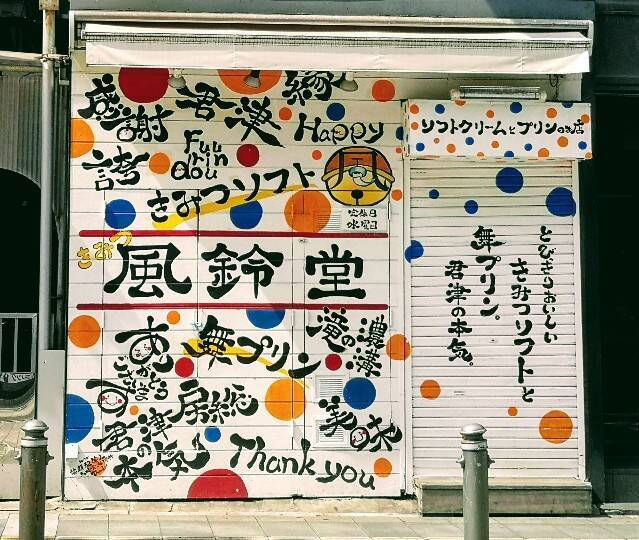 感謝
君津
縁
Happy
誇
Fuu
rin
dou
きみつソフト
定休日
水曜日
きみつ
風鈴堂
ありがとうございます
無プリン
滝の濃溝
房総
君津の本気
美味
Thank you
ソフトクリームとプリンのお店
とびきりおいしい
きみつソフトと
無プリン。
君津の本気。